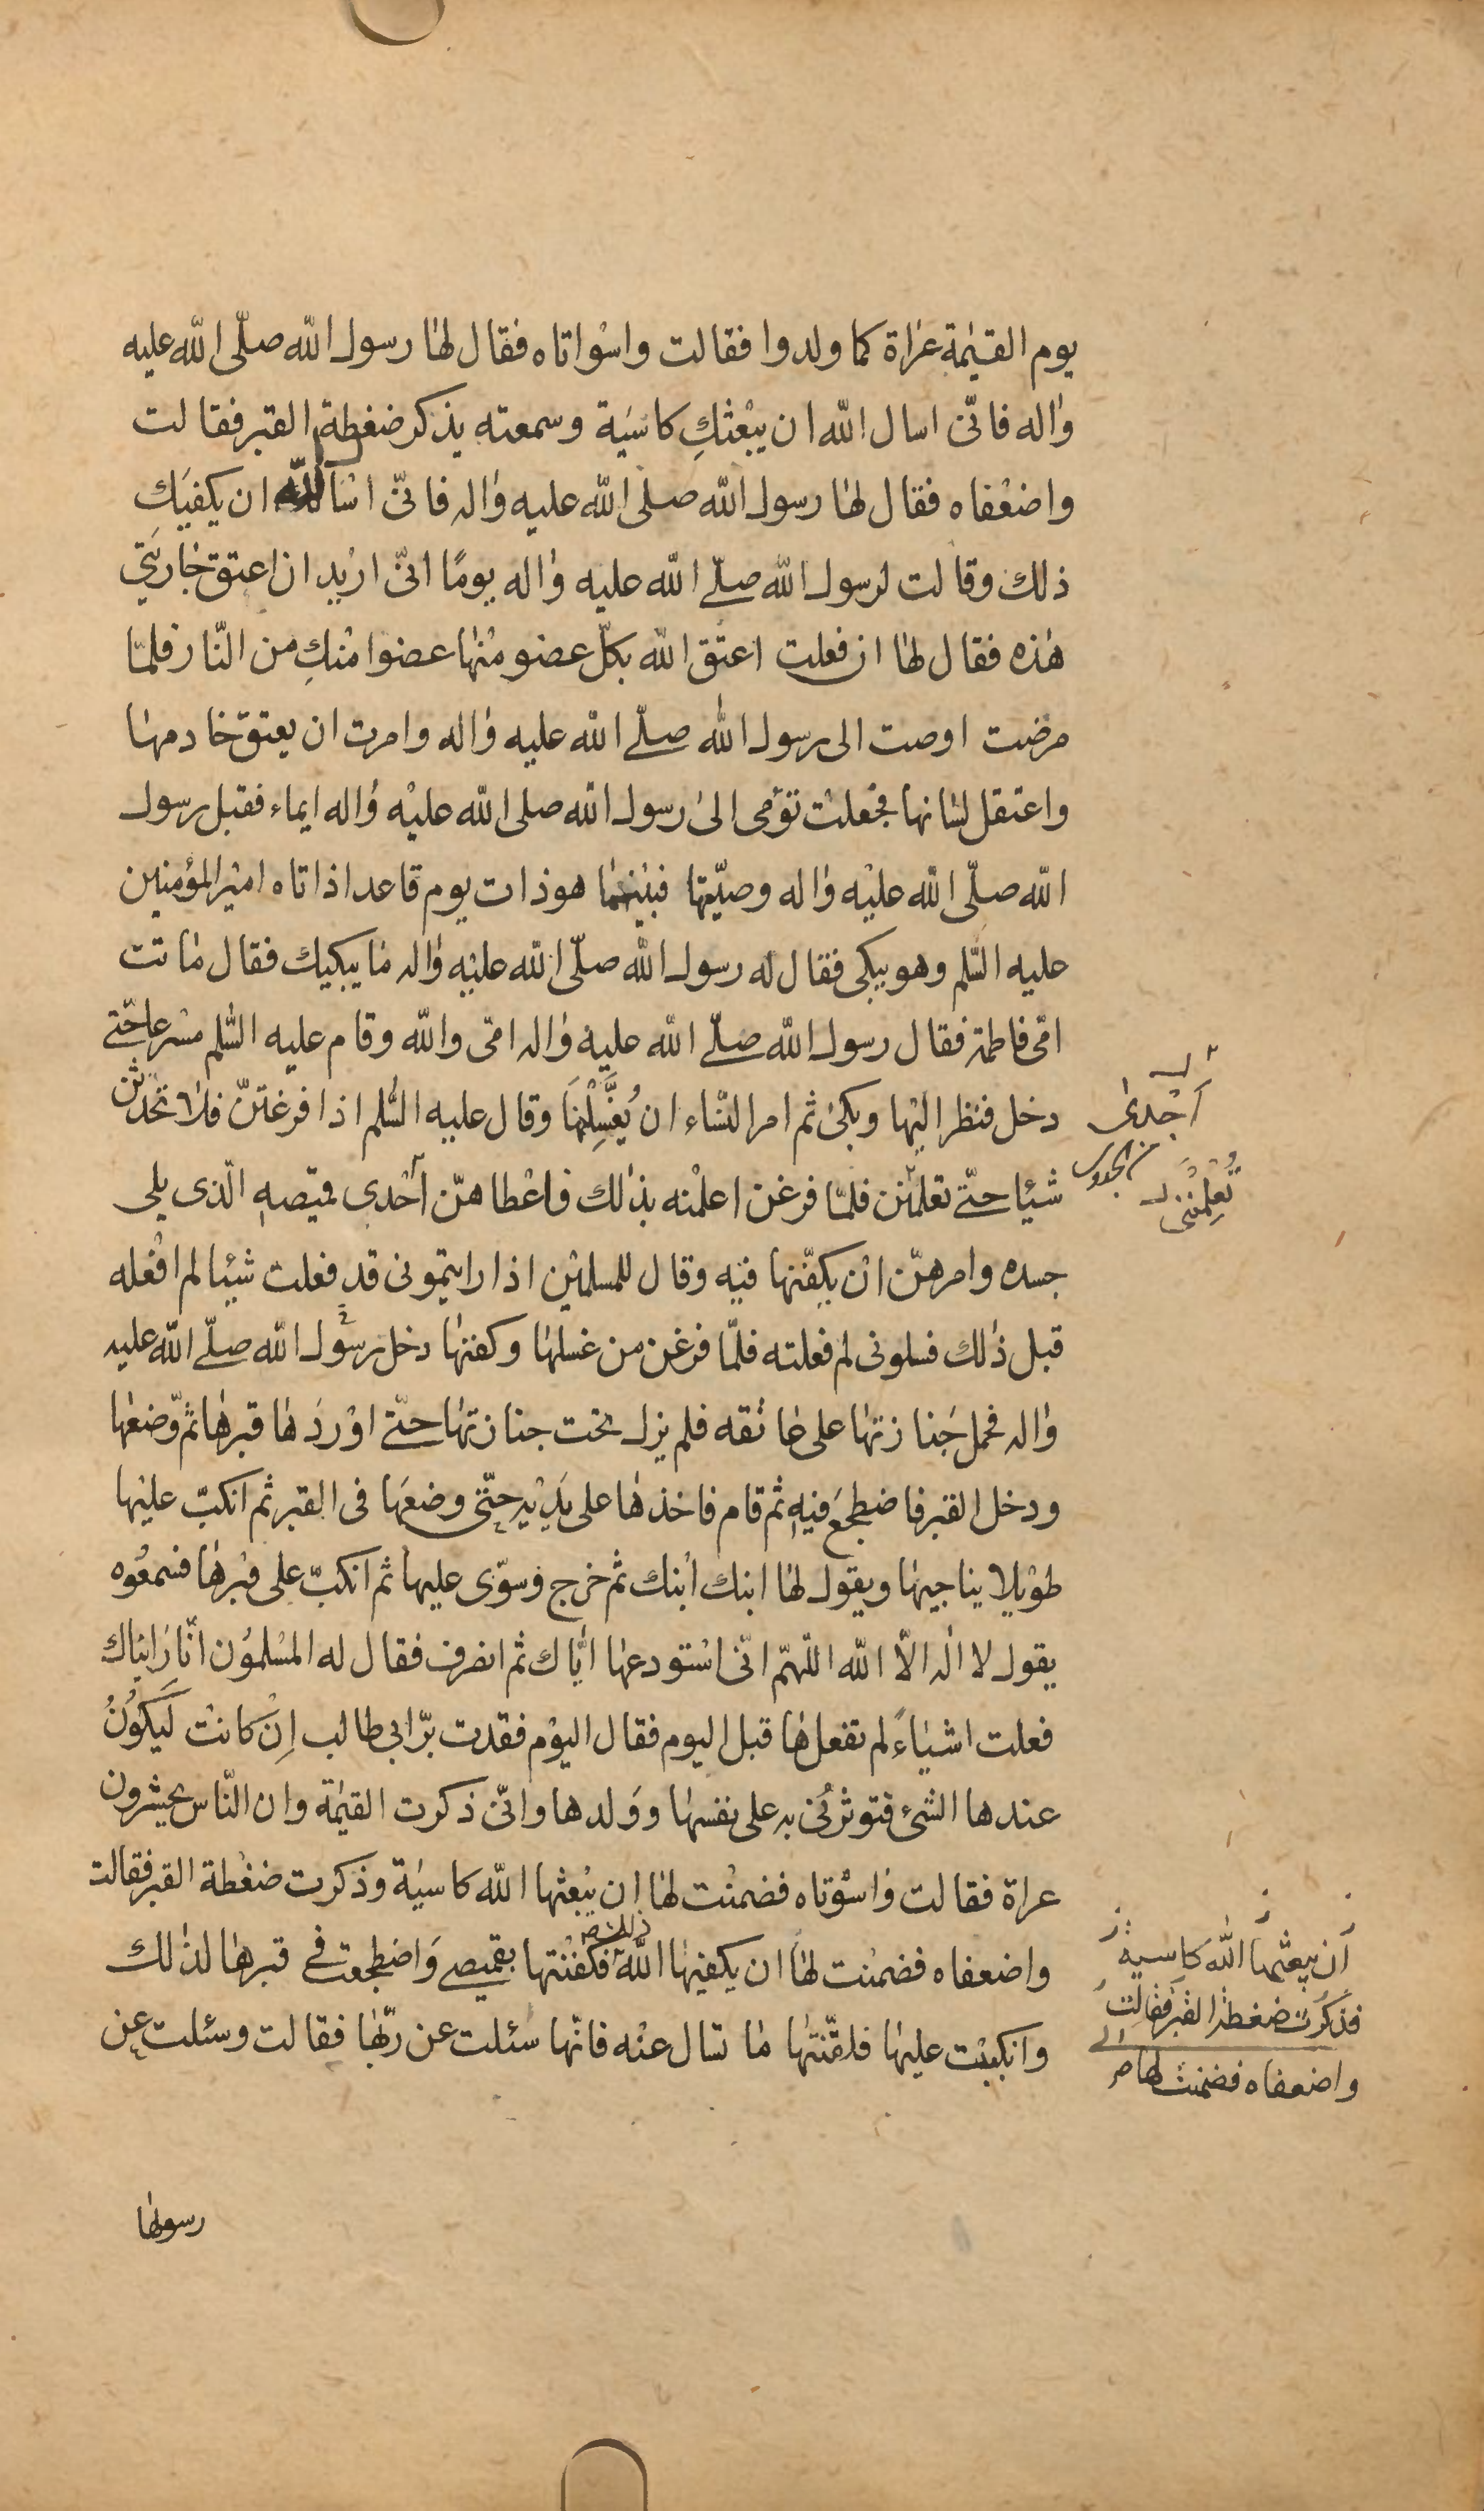 يوم القيٰمة عراة كما ولدوا فقالت واسواتاه فقال لها رسول الله صلّى الله عليه
واله فانّى اسال الله ان يبعثكِ كاسَية وسمعته يذكر ضغطة القبر فقالت
واضعْفاه فقال لها رسول الله صلى الله عليه واله فانّى اسْأل الله ان يكفيَكِ
ذلك وقالت لرسول الله صلّى الله عليه واله يومًا انّى اريد ان اعتق جاريَتى
هٰذه فقال لها ان فعلت اعتق الله بكلّ عضو منها عضوا منكِ من النّار فلمّا
مرضت اوصت الى رسول الله صلّى الله عليه واله وامرت ان يعتق خادمها
واعتقل لسانها فجعلت تؤمى الى رسول الله صلى الله عليْه واله ايماء فقبل رسول
الله صلّى الله عليْه واله وصيّتها فبينما هو ذات يوم قاعد اذ اتاه امير المؤمنين
عليه السّلم وهو يبكى فقال له رسول الله صلّى الله عليْه واله ما يبكيك فقال ماتت
امّى فاطمة فقال رسول الله صلّى الله عليه واله امّى والله وقام عليه السّلم مسرعا حتّى
دخل فنظر اليْها وبكى ثم امر النّساء ان يُغَسِّلْنَها وقال عليه السّلم اذا فرغتنّ فلا تحدثن
شيئا حتّى تعلمننى فلمّا فرغن اعلمْنه بذلك فاعْطاهنّ أحْدى قميصه الّذى يلى
جسده وامرهنّ انْ يكفّنها فيه وقال للمسلمين اذا رايتمونى قد فعلت شيئا لم افْعله
قبل ذٰلك فسلونى لم فعلته فلمّا فرغن من غسلها وكفنها دخل رسول الله صلّى الله عليه
واله فحمل جَنازتها على عاتقه فلم يزل تحت جنازتها حتّى اوْرَدَها قبرها ثمّ وضعها
ودخل القبر فاضطجَع فيه ثم قام فاخذها على يَدَيْه حتّى وضعَها فى القبر ثم انكبّ عليْها
طوْيلا يناجيها ويقول لها ابنك ابْنك ثم خرج وسوّى عليها ثم انكبّ على قبرها فسمعُوه
يقول لا اله الّا الله اللّهمّ انّى اسْتودعها ايّاك ثم انصرف فقال له المسْلموُن انّا رَايناك
فعلت اشيٰاءً لم تفعلها قبل اليوم فقال اليوْم فقدت برّ ابى طالب اِنْ كانتْ لَيَكوُنُ
عندها الشىْ فتوثرنى به على نفسها ووَلدها وانّى ذكرت القيٰمة وان النّاس يحشرون
عراة فقالت واسْوتاه فضمنْت لها ان يبْعثها الله كاسيٰة وذكرت ضغْطة القبر فقالت
واضعفاه فضمنْت لها ان يكفيها الله ذلك فكفّنْتها بقميصى وَاضطجعت فى قبرها لذٰلك
وانكببْت عليها فلقّنْتها ما تسال عنْه فانّها سئلت عن ربّها فقالت وسئلت عن
رسولها
أحْدى
تُعْلِمْنَنى
أن يبعثها الله كاسية
فذكرت ضغطة القبر فقالت
واضعفاه فضمنت لها